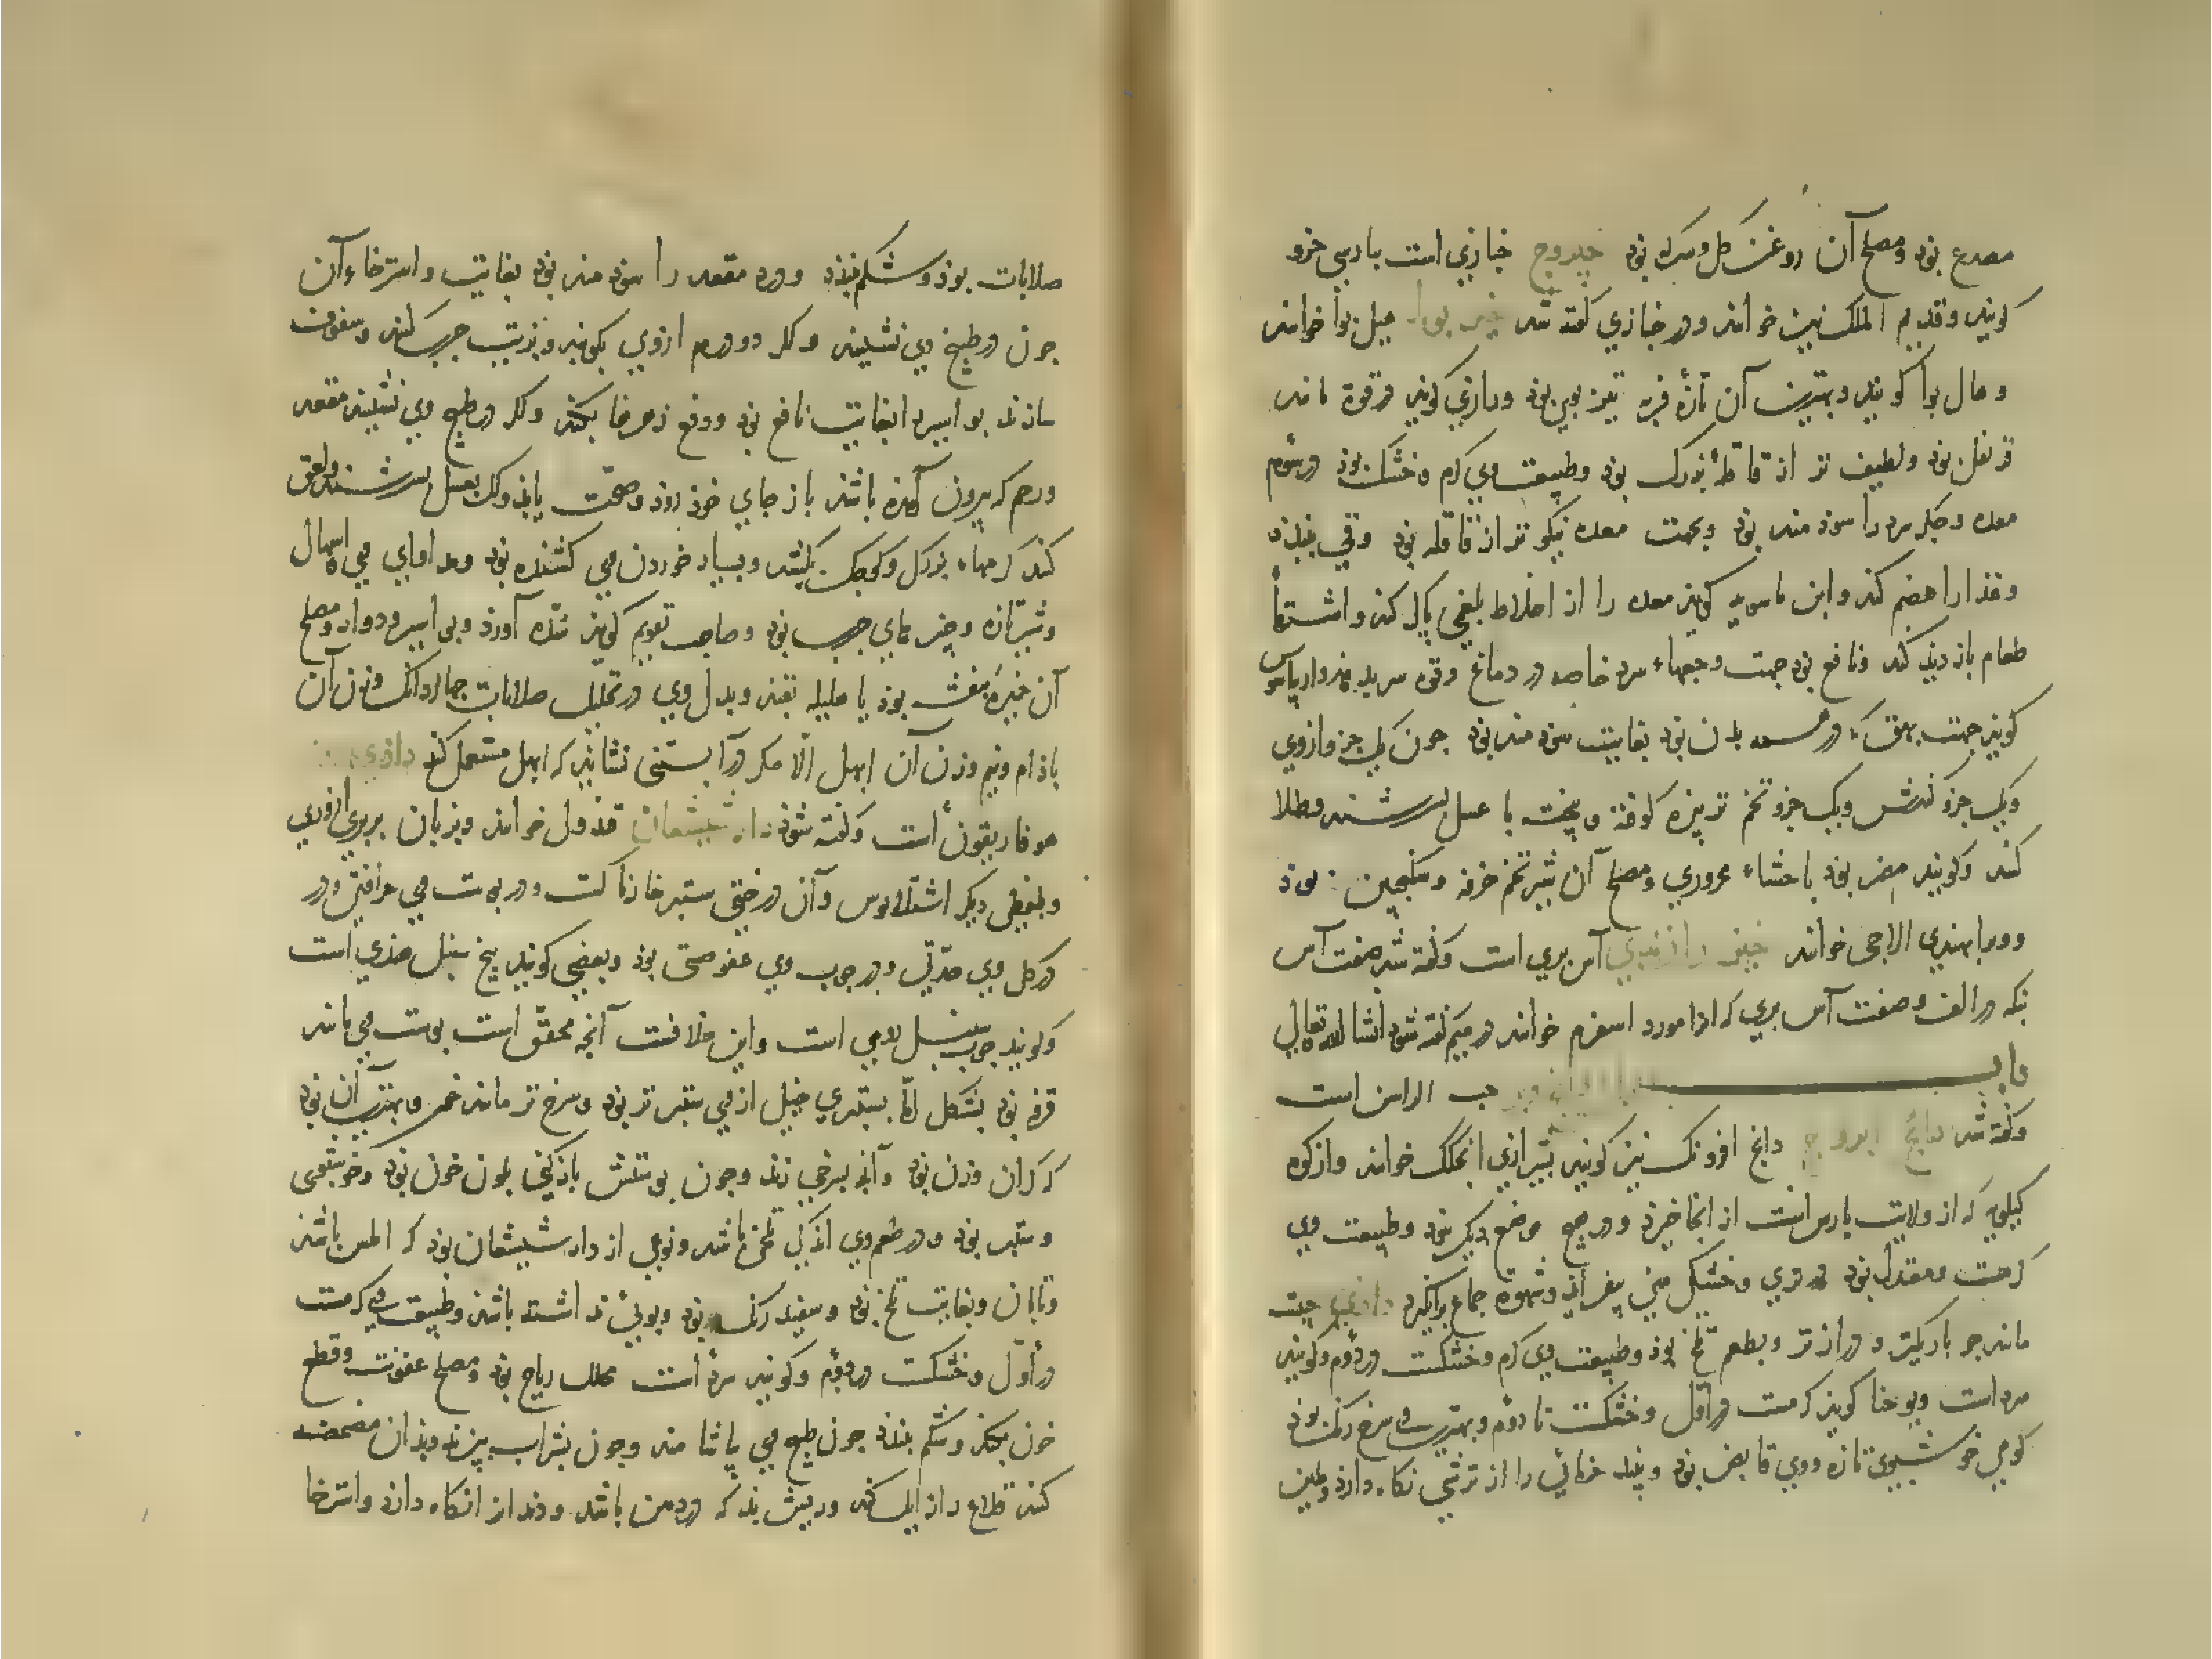 مصدع بود ومصلح آن روغن کل وسرکه بود خیروج خبازی است بارسی خرو
کویند وقدیم الملک نیز خوانند ودر خبازی کفته شد خیربوا هیل بوا خوانند
وهال بوا کویند وبهترین آن تازه فربه تیز بوی بود ورازی کوید در قوة مانند
قرنفل بود ولطیف تر از قاقلهٔ بزرک بود وطبیعت وی کرم وخشک بود در سوم
معده وجکر سرد را سود مند بود وبجهت معده نیکو تر از قاقله بود وقی ببندد
وغذا را هضم کند وابن ماسویه کوید معده را از اخلاط بلغمی پاک کند واشتهاء
طعام بازدید کند ونافع بود جهت وجعهاء سرد خاصه در دماغ
کویند جهت بهق که در بدن بود بغایت سود مند بود جون یک جزو ازوی
ویک جزو کندش ویک جزو تخم تربزه کوفته وبیخته با عسل بسرشند وطلا
کنند وکویند مضر بود باحشاء محروری ومصلح آن شیر تخم خرفه وسکنجبین بود
وویرا بهندی الاجی خوانند آس بری است وکفته شد صفت آس
بکه در الف وصفت آس بری که انرا مورد اسفرم خوانند در میم کفته شود انشا الله تعالی
باب حب الراس است
وکفته شد دانج ابروج دانج افرونک نیز کویند بشیرازی انجکک خوانند واز کوه
کیلویه که از ولایت بارس است از انجا خیزد ودر هیج موضع دیکر نبود وطبیعت وی
کرمست ومعتدل بود در تری وخشکی منی بیفزاید وشهوة جماع برانکیزد داذی حبیست
مانند جو باریکتر ودرازتر وبطعم تلخ بود وطبیعت وی کرم وخشکست در دوم وکویند
سرد است ویوحنا کوید کرمست در اول وخشکست تا دوم وبهترین وی سرخ رنک بود
کوهی خوشبوی تازه ووی قابض بود ونبیذ خرمائی را از ترشی نکاه دارد وملین
صلابات بود وشکم ببندد ودرد مقعد را سود مند بود بغایت واسترخاء آن
جون در طبیخ وی نشینند وکر دو درم ازوی بکوبند وبزیت جرب کنند وسفوف
سازند بواسیر را بغایت نافع بود ودفع زهرها بکند وکر در طبیخ وی نشینند مقعد
ورحم که بیرون آمده باشد باز جای خود رود وصحت یابد وکر بعسل بسرشند ولعق
کنند کرمهاء بزرک وکوجک بکشد وبسیار خوردن وی کشنده بود ومداوای وی باسهال
وشیر تازه وجیزهای جرب بود وصاحب تقویم کوید سده آورد وبواسیر ودوار ومصلح
آن خمیرهٔ بنفشه بود یا هلیله بقند وبدل وی در تحلیل صلابات جهار دانک وزن آن
باذام ونیم وزن آن ابهل الا مکر در آبستنی نشاید که ابهل مستعمل کنند داذی رومی
هوفاریقون است وکفته شود دار شیشعان قندول خوانند وبزبان بربری ازوری
وبلفظی دیکر اشتلاوس وآن درختی ستبر خارناکست ودر بوست وی حرافتی ودر
در کل وی حدتی ودر جوب وی عفوصتی بود وبعضی کویند بیخ سنبل هندی است
وکویند جوب سنبل رومی است واین خلافست آنجه محقق است بوست وی مانند
قرفه بود بشکل اما بستبری خیلی از وی ستبر تر بود وسرخ تر مانند خمر وبهترین آن بود
که کران وزن بود وآنکه بسرخی زند وجون بوستش بازکنی بلون خون بود وخوشبوی
وستبر بود ودر طعم وی اندکی تلخی باشد ونوعی از دار شیشعان بود که املس باشد
وتابان وبغایت تلخ بود وسفید رنک بود وبوئی نداشته باشد وطبیعت وی کرمست
در اول وخشکست در دوم وکویند سرد است محلل ریاح بود ومصلح عفونت وقطع
خون بکند وشکم ببندد جون طبیخ وی بیاشامند وجون بشراب بپزند وبدان مضمضه
کنند قلاع را زایل کند وریش بد که در دهن باشد ودندان را نکاه دارد واسترخا